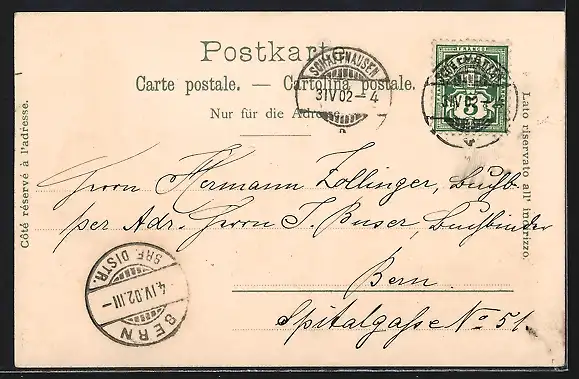 Postkarte.
Carte postale. — Cartolina postale.
Nur für die Adresse.
Côté réservé à l'adresse.
Lato riservato all' indirizzo.
FRANCO
5
3 IV 02 – 4
Herrn Hermann Zollinger, Buchb.
per Adr. Herrn J. Buser, Buchbinder
Bern
Spitalgasse No 51.
BRF. DISTR.
4.IV.02.III–
BERN